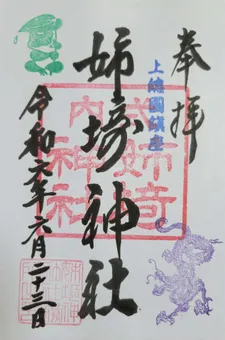 奉拝
上總國鎮座
姉埼神社
式内
姉埼
神社
令和六年六月二十三日